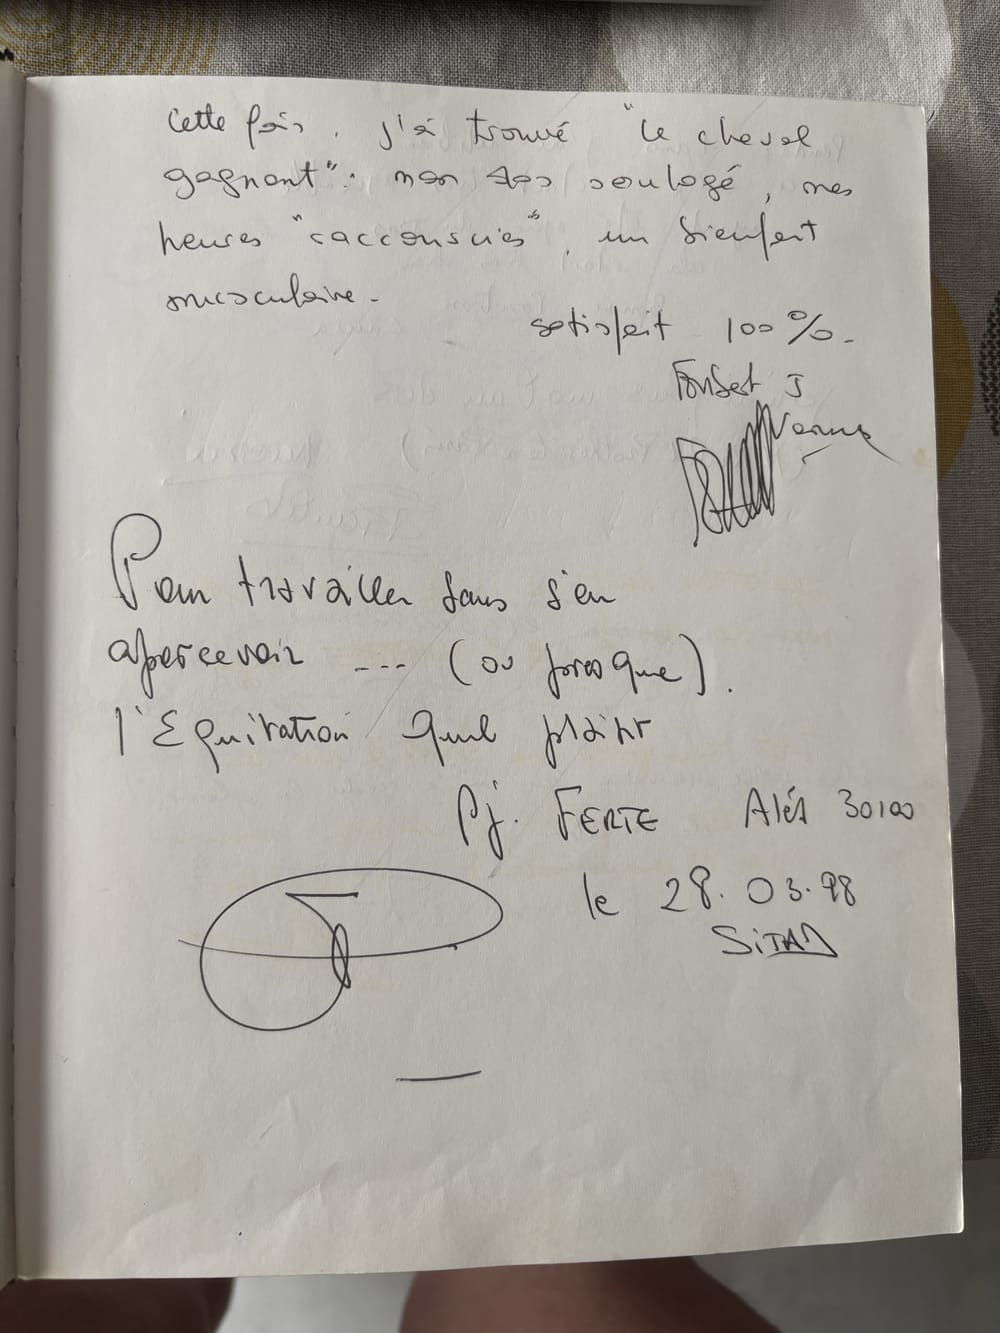 Cette fois, j'ai trouvé "le cheval
gagnant": mon dos soulagé, mes
heures "raccourcies", un bienfait
musculaire.
satisfait 100%.
J
Pour travailler sans s'en
apercevoir --- (ou presque).
l'Equitation quel plaisir
Pj. FERTE Alés 30100
le 28.03.98